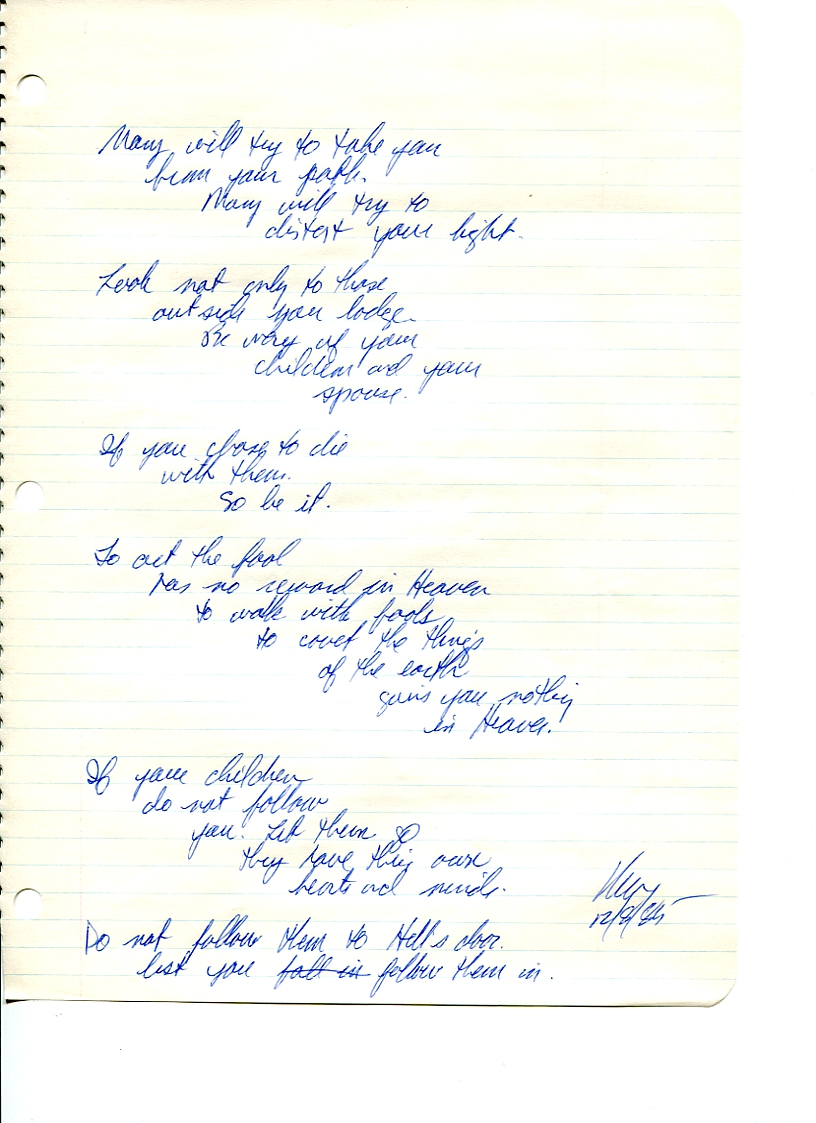 Many will try to take you
from your path.
Many will try to
distort your light.
Look not only to those
outside your lodge.
Be wary of your
children and your
spouse.
If you chose to die
with them.
So be it.
To act the fool
has no reward in Heaven
to walk with fools
to covet the things
of the earth
gains you nothing
in Heaven.
If your children
do not follow
you. Let them go
they have thier own
hearts and minds.
12/9/95
Do not follow them to Hell's door.
lest you fall in follow them in.